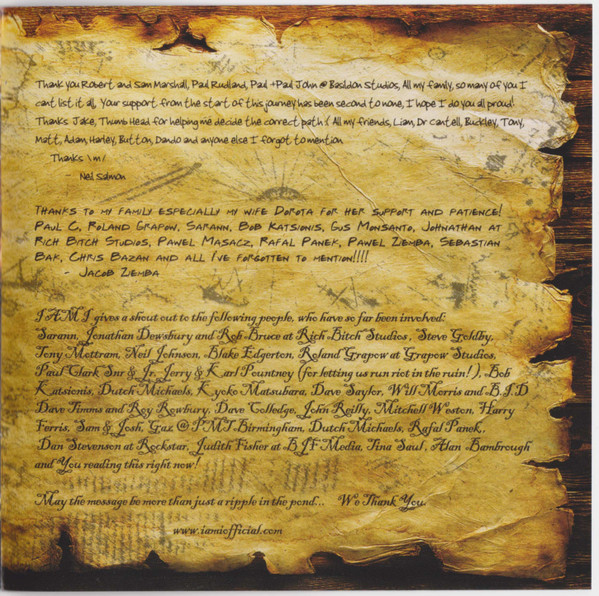 Thank you Robert and Sam Marshall, Paul Rudland, Paul + Paul John @ Basildon Studios, All my family, so many of you I
cant list it all, Your support from the start of this journey has been second to none, I hope I do you all proud!
Thanks Jake, Thumb Head for helping me decide the correct path :( All my friends, Liam, Dr Cantell, Buckley, Tony,
Matt, Adam, Harley, Button, Dando and anyone else I forgot to mention
Thanks \m/
- Neil Salmon
Thanks to my family especially my wife Dorota for her support and patience!
Paul C, Roland Grapow, Sarann, Bob Katsionis, Gus Monsanto, Johnathan at
Rich Bitch Studios, Pawel Masacz, Rafal Panek, Pawel Zemba, Sebastian
Bak, Chris Bazan and all I've forgotten to mention!!!!
- Jacob Zemba
I AM I gives a shout out to the following people, who have so far been involved:
Sarann, Jonathan Dewsbury and Rob Bruce at Rich Bitch Studios , Steve Goldby,
Tony Mottram, Neil Johnson, Blake Edgerton, Roland Grapow at Grapow Studios,
Paul Clark Snr & Jr, Jerry & Karl Pountney (for letting us run riot in the ruin!), Bob
Katsionis, Dutch Michaels, Kyoko Matsubara, Dave Saylor, Will Morris and B.J.D
Dave Timms and Roy Rowbury, Dave Golledge, John Reilly, Mitchell Weston, Harry
Ferris, Sam & Josh, Gaz @ PMT Birmingham, Dutch Michaels, Rafal Panek,
Dan Stevenson at Rockstar, Judith Fisher at BJF Media, Tina Saul, Alan Bambrough
and You reading this right now!
May the message be more than just a ripple in the pond... We Thank You.
www.iamiofficial.com